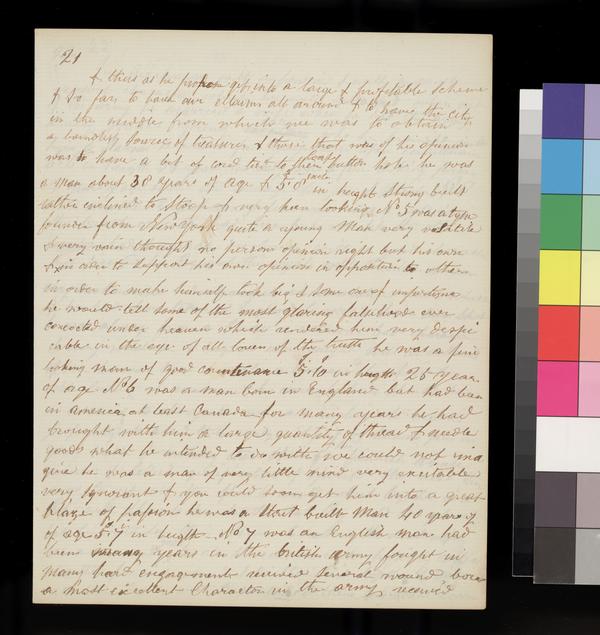 21
& thus as he propose get into a large & profitable scheme
& so far to have our claims all around & to have the city
in the middle from which we was to obtain
a boundless source of treasures & those that was of his opinion
was to have a bit of cord tied to their coats button hole he was
a man about 38 years of age & 5.8 inches in height strong built
rather inclined to stoop & very keen looking No 5 was a type
founder from New York quite a young man very volitile
& very vain thought no persons opinion right but his own
& in order to support his own opinion in opposition to others
in order to make himself look big & some one of importance
he would tell some of the most glaring falshoods ever
concocted under heaven which rendered him very despi
cable in the eye of all lovers of the truth he was a fine
looking man of good countenance 5.10 in height 25 years
of age No 6 was a man born in England but had been
in america at least Canada for many years he had
brought with him a large quantity of thread & needle
goods what he intended to do with we could not ima
gine he was a man of very little mind very excitable
very ignorant & you could soon get him into a great
blaze of passion he was a stout built man 40 years of
of age 5.7 in height No 7 was an English man had
been many years in the british army fought in
many hard engagements received several wound bore
a most excellent Character in the army received